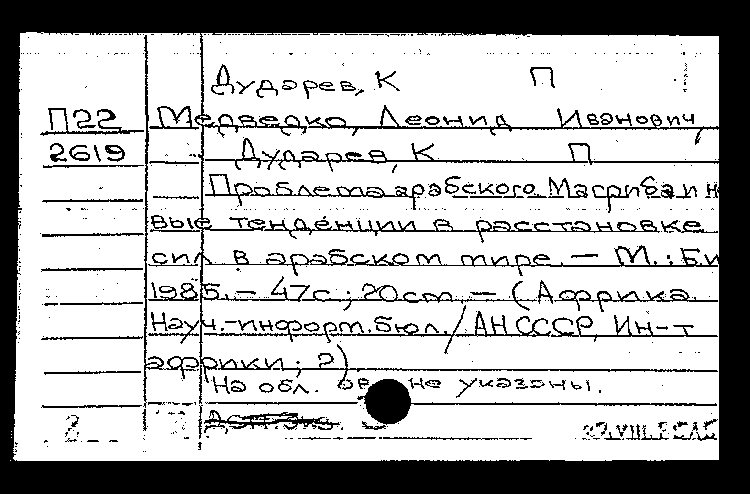 Дударев, К П
П22 Медведко, Леонид Иванович,
2619 Дударев, К П
Проблема арабского Магриба и но
вые тенденции в расстановке
сил в арабском мире. – М.: Би
1985. – 47с.; 20см. – (Африка.
Науч.-информ. бюл. / АН СССР, Ин-т
африки; 2)
На обл. не указаны.